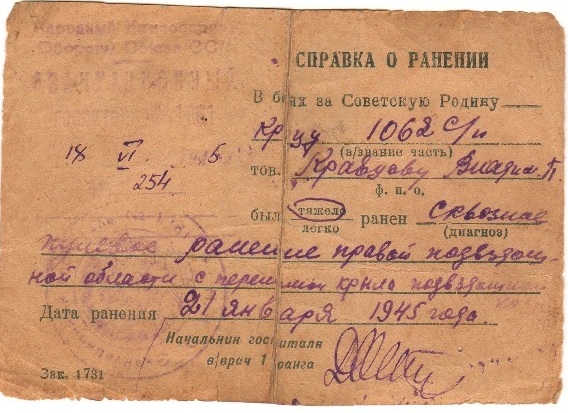 Народный Комиссариат
Обороны Союза ССР
СПРАВКА О РАНЕНИИ
В боях за Советскую Родину
Кр-цу 1062 с/п
(в/звание часть)
18 VI 5
254
тов. Кравцову Владим. П.
ф. и. о.
был тяжело ранен сквозное
легко (диагноз)
пулевое ранение правой подвздош-
ной области с крыла подвздошной
Дата ранения 21 января 1945 года.
Начальник госпиталя
в/врач 1 ранга
Зак. 1731